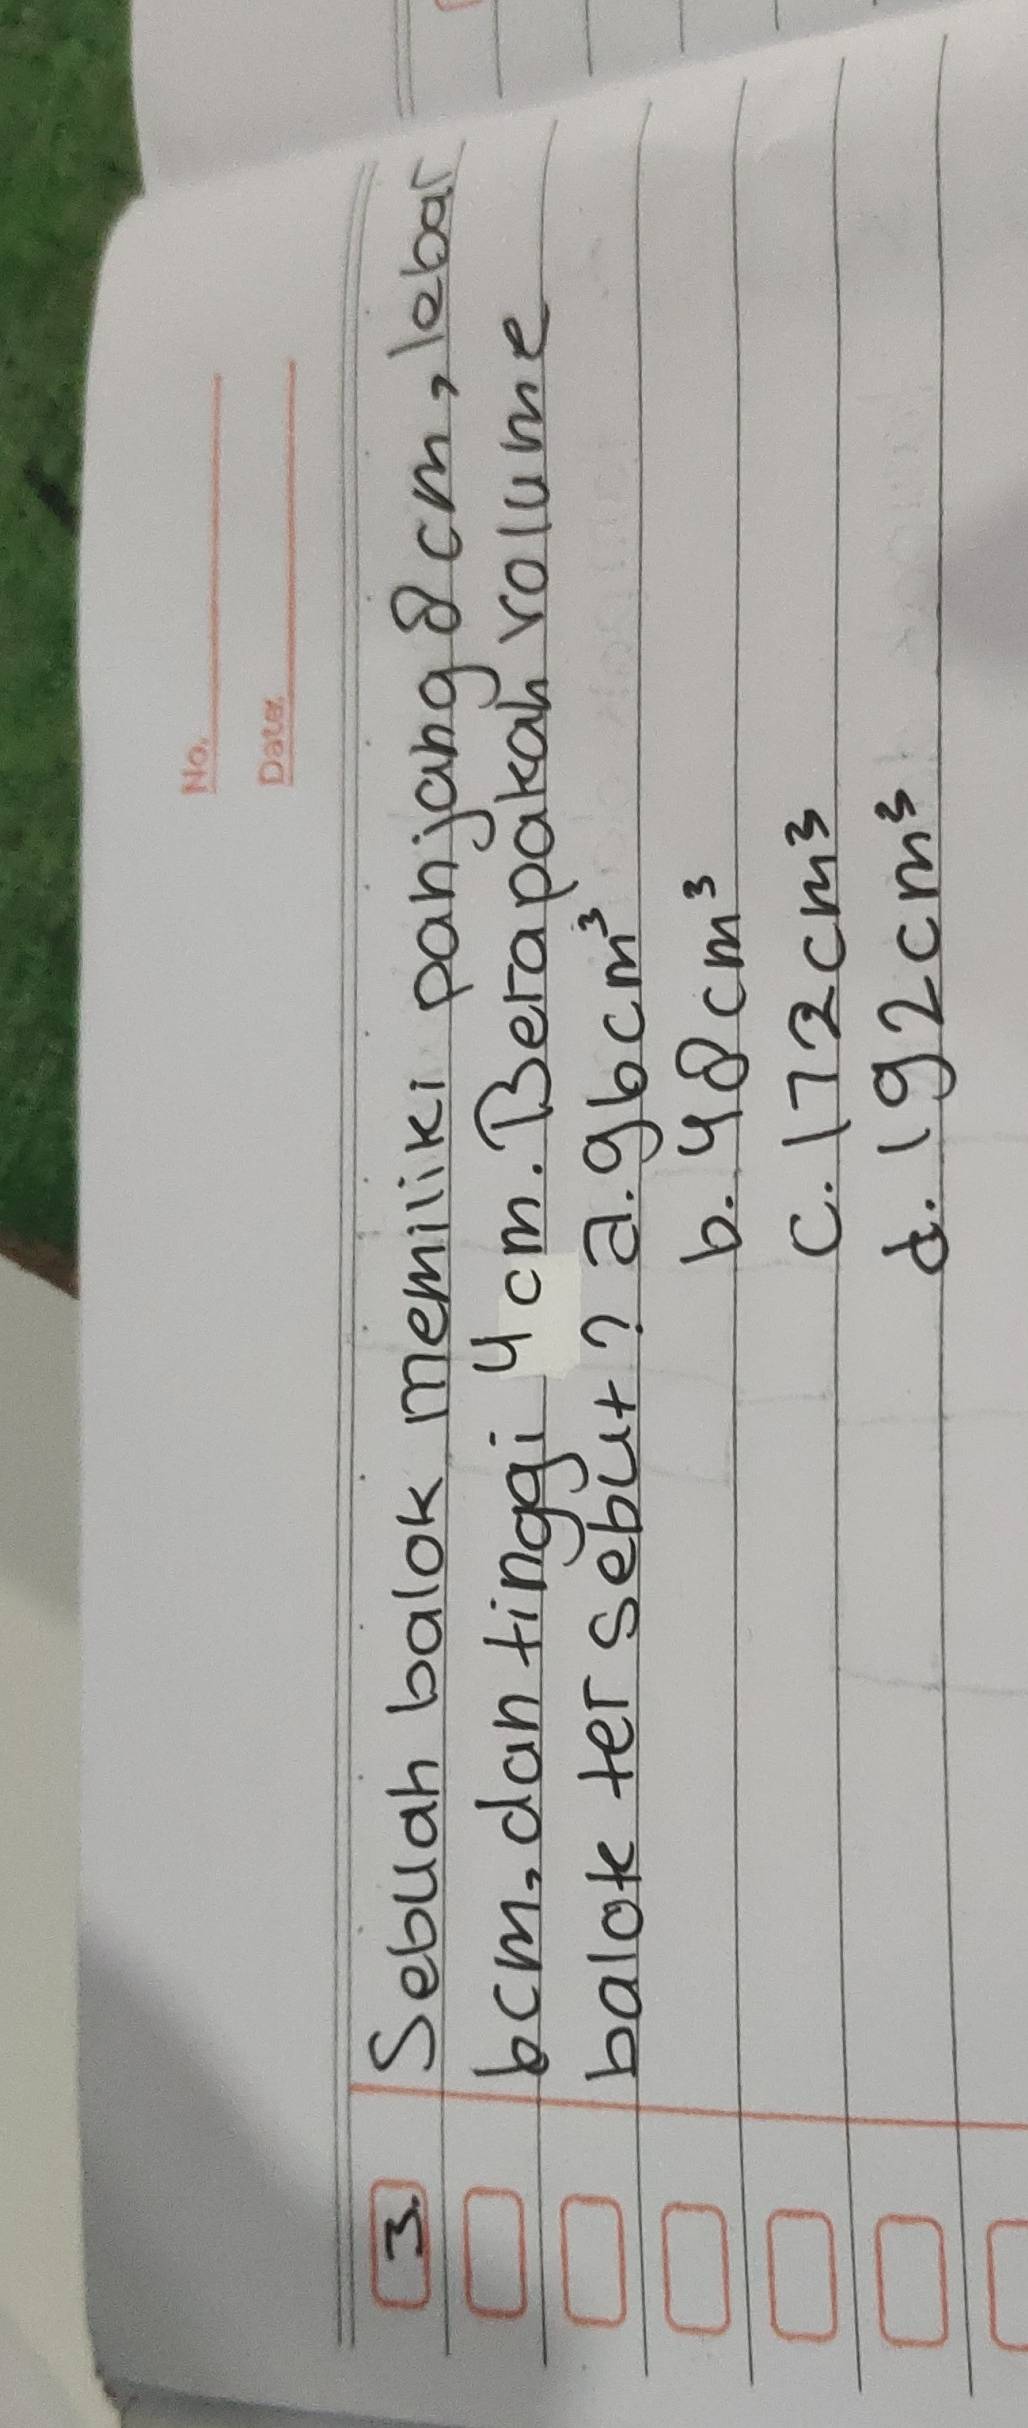 No.
Date.
3. Sebuah balok memiliki panjang 8 cm, lebar
6cm, dan tinggi 4 cm. Berapakah volume
balok ter sebut? a. 96cm³
b. 48cm³
c. 172cm³
d. 192cm³